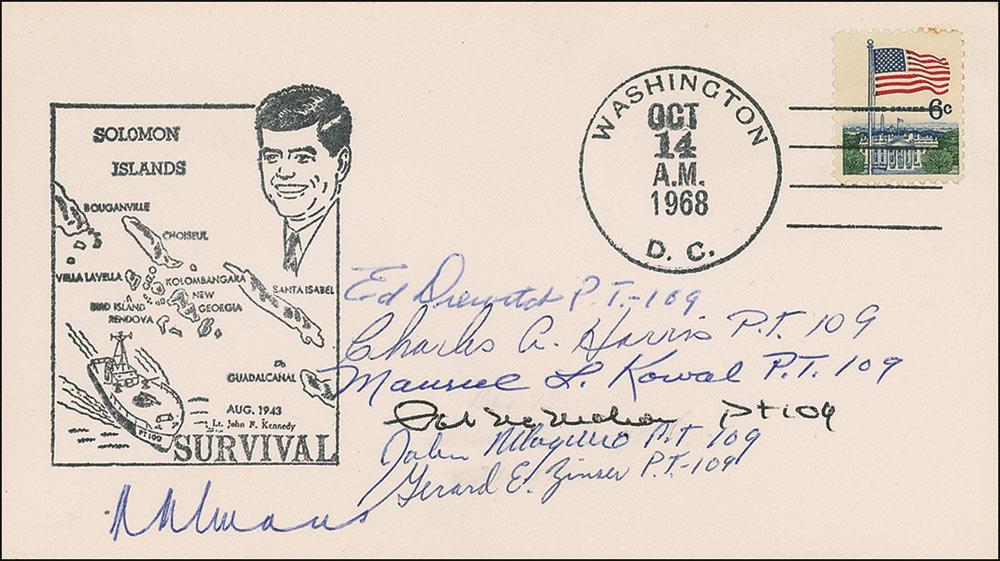 SOLOMON
ISLANDS
BOUGANVILLE
CHOISEUL
VELLA LAVELLA
KOLOMBANGARA
NEW
GEORGIA
SANTA ISABEL
BIRD ISLAND
RENDOVA
GUADALCANAL
PT 109
AUG. 1943
Lt. John F. Kennedy
SURVIVAL
WASHINGTON
OCT
14
A.M.
1968
D. C.
6c
Ed Drewitch P.T.-109
Charles A. Harris P.T. 109
Maurice L. Kowal P.T. 109
Pat McMahon Pt 109
John Maguire P.T 109
Gerard E. Zinser P.T.-109
Evans